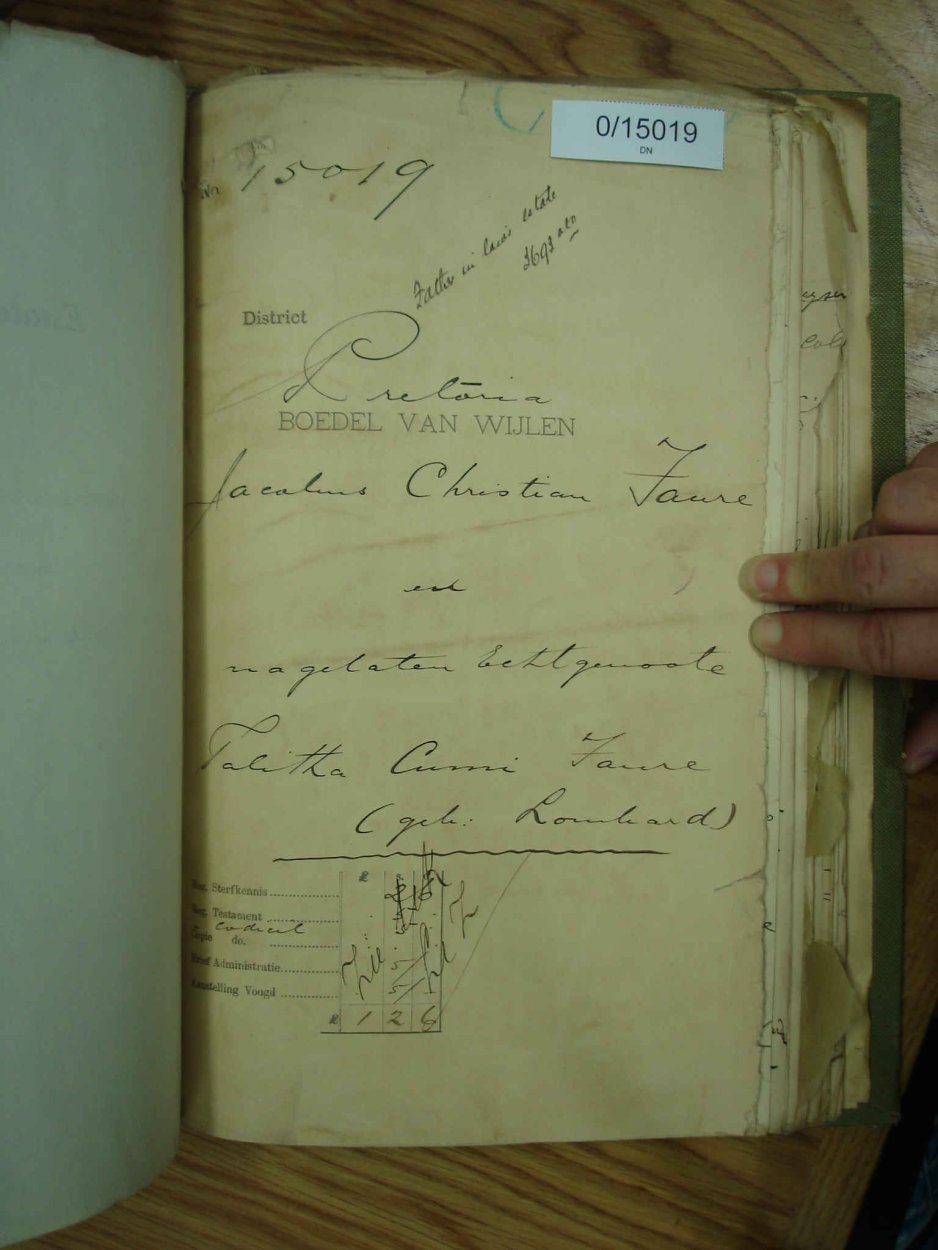 0/15019
DN
No. 15019
Father in law's estate
3693
District
Pretoria
BOEDEL VAN WIJLEN
Jacobus Christian Faure
en
nagelaten Echtgenoote
Talitha Cumi Faure
(geb: Lombard)
£
Reg. Sterfkennis
Reg. Testament
Codicil
Copie do.
Brief Administratie
5/
Aanstelling Voogd
5/
£ 1 2 6